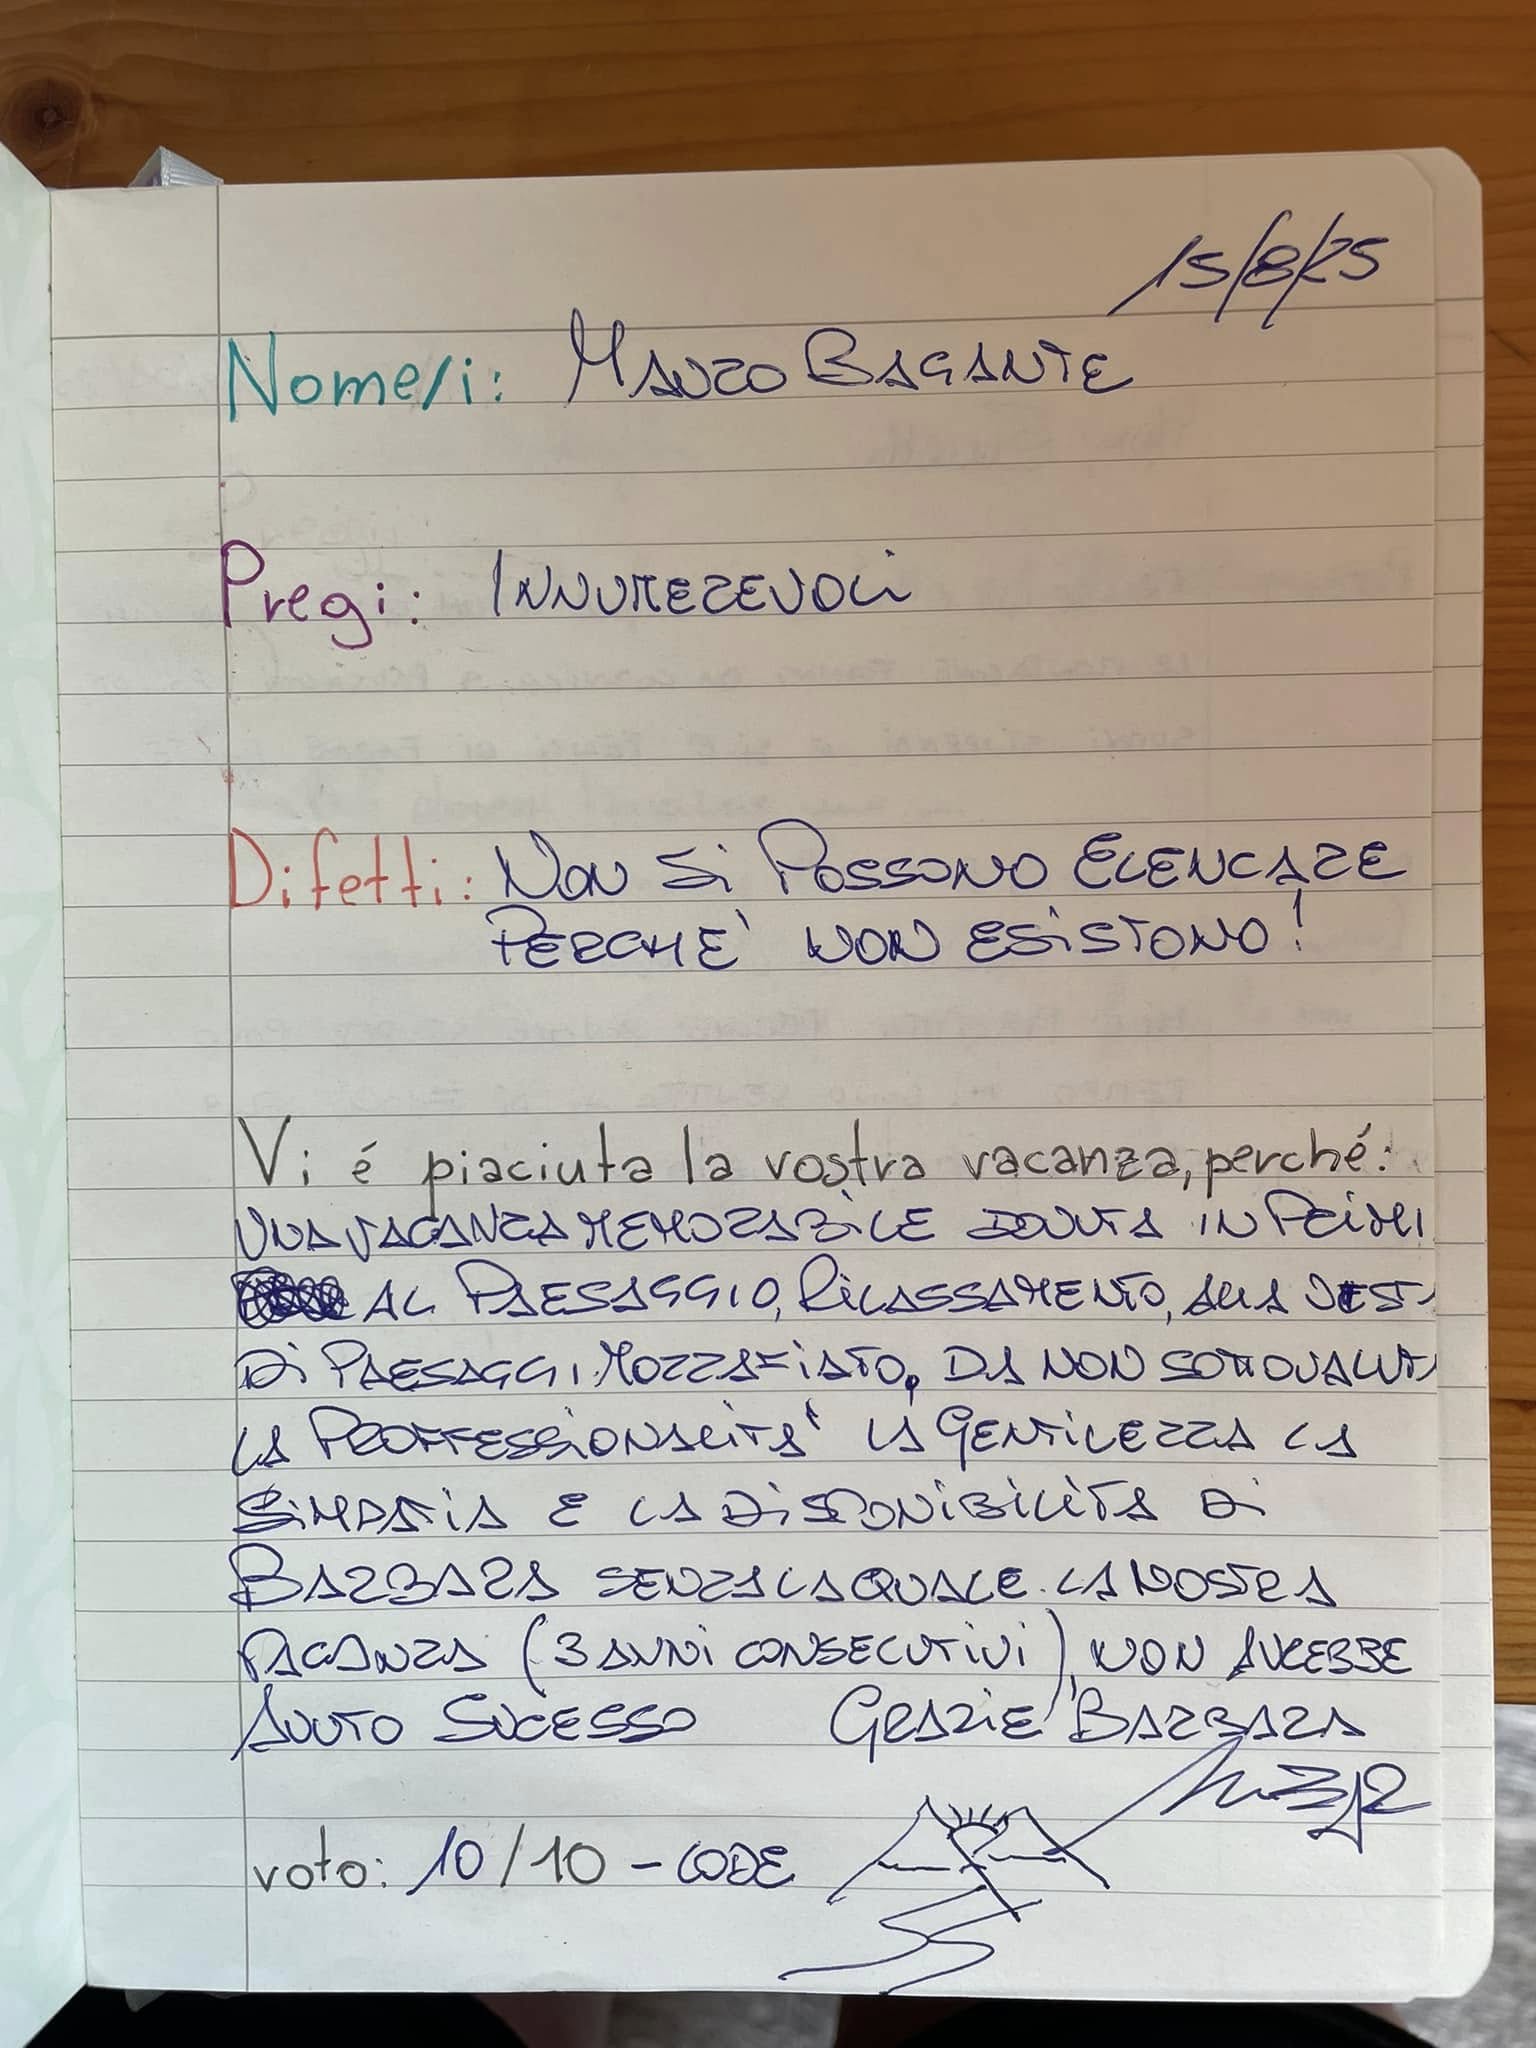 15/8/25
Nome/i: MAURO BAGANTE
Pregi: INNUMEREVOLI
Difetti: NON Si POSSONO ELENCARE
PERCHE' NON ESISTONO!
Vi é piaciuta la vostra vacanza, perché:
UNA VACANZA MEMORABILE DOVUTA IN PRIMI
AL PAESAGGIO, RILASSAMENTO, ALLA VISTA
Di PAESAGGI MOZZAFIATO, DA NON SOTTOVALUTA
LA PROFFESSIONALITA' LA GENTILEZZA LA
SIMPATIA E LA DISPONIBILITA Di
BARBARA SENZA LA QUALE LA NOSTRA
VACANZA (3 ANNI CONSECUTIVI), NON AVREBBE
AVUTO SUCESSO GRAZIE BARBARA
voto: 10/10 - LODE